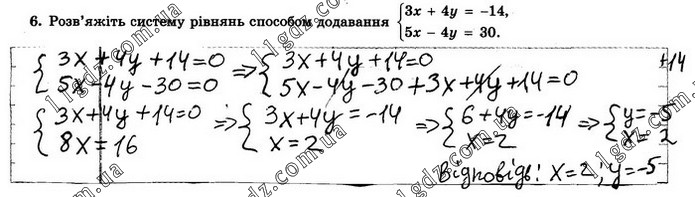 6. Розв'яжіть систему рівнянь способом додавання { 3x + 4y = –14,
5x – 4y = 30.
{ 3x+4y+14=0 => { 3x+4y+14=0
5x-4y-30=0 5x-4y-30+3x+4y+14=0 +14
{ 3x+4y+14=0 => { 3x+4y=-14 => { 6+4y=-14 => { y=-5
8x=16 x=2 x=2 x=2
Відповідь: x=2; y=-5
11gdz.com.ua